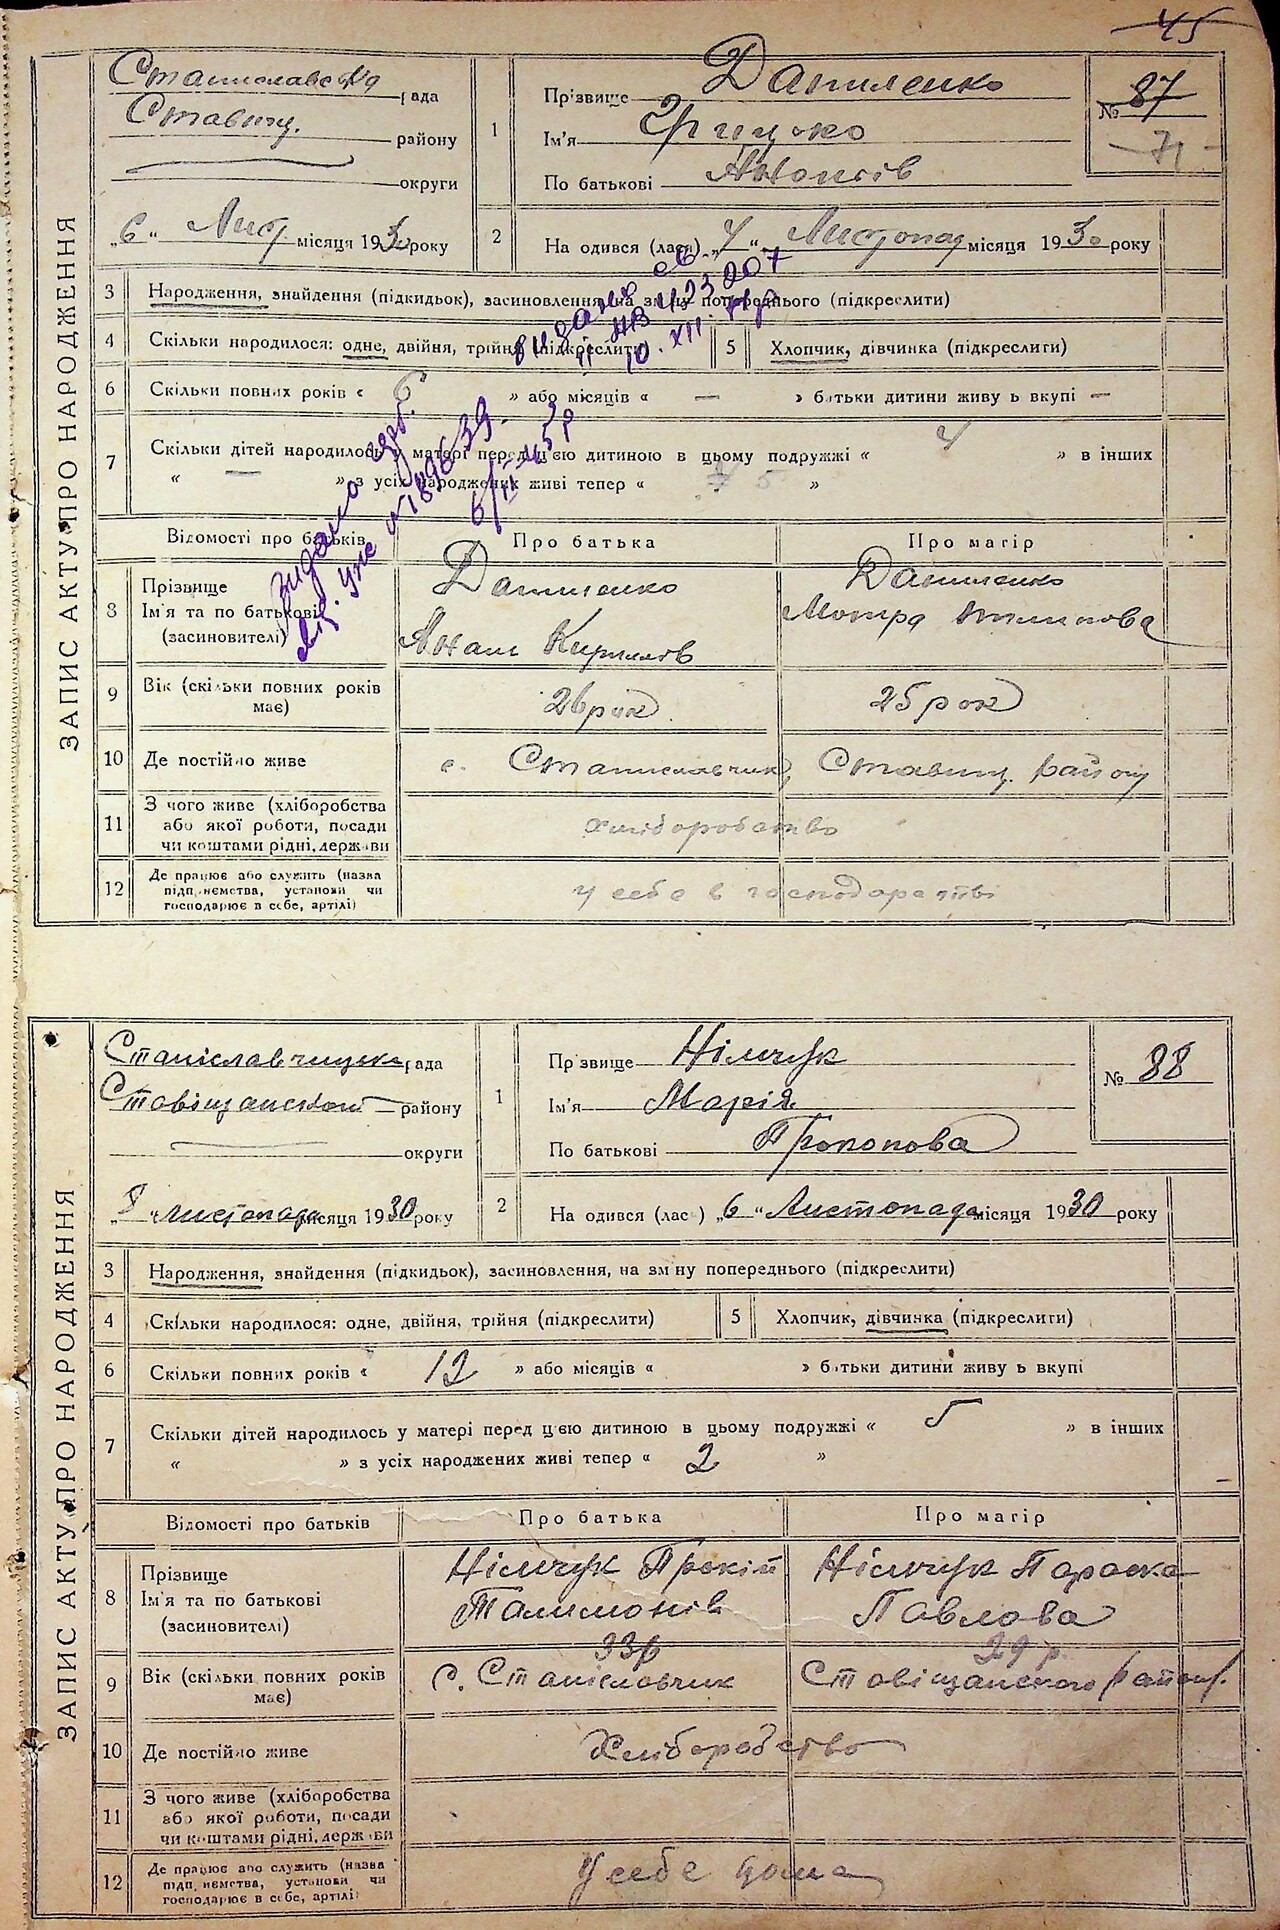 45
ЗАПИС АКТУ ПРО НАРОДЖЕННЯ
рада
Ставищ. району
округи
„6“ Лист. місяця 1930 року
1
Прізвище Даниленко
Ім'я Грицько
По батькові
№ 87
71
2
На одився (лася) „4“ Листопад місяця 1930 року
3 Народження, знайдення (підкидьок), засиновлення, на зміну попереднього (підкреслити)
4 Скільки народилося: одне, двійня, трійня (підкреслити)
5 Хлопчик, дівчинка (підкреслити)
6 Скільки повних років « 6 » або місяців « — » батьки дитини живу ь вкупі —
7 Скільки дітей народилось у матері перед цією дитиною в цьому подружжі « 4 » в інших
« — » з усіх народжених живі тепер « 5 »
видано св.
10.XII.
видано
№ 189639
Відомості про батьків
Про батька
Про матір
8 Прізвище
Ім'я та по батькові
(засиновителі)
Даниленко
Кирилів
Даниленко
Мотря
9 Вік (скільки повних років
має)
26 рік
25 рок
10 Де постійно живе
с. Станиславчик, Ставищ. району
11 З чого живе (хліборобства
або якої роботи, посади
чи коштами рідні, держави
хліборобство
12 Де працює або служить (назва
підприємства, установи чи
господарює в себе, артілі)
у себе в господарстві
ЗАПИС АКТУ ПРО НАРОДЖЕННЯ
рада
району
округи
„8“ Листопада місяця 1930 року
1
Пр звище Німчук
Ім'я Марія
По батькові Прокопова
№ 88
2
На одився (лас ) „6“ Листопада місяця 1930 року
3 Народження, знайдення (підкидьок), засиновлення, на зм ну попереднього (підкреслити)
4 Скільки народилося: одне, двійня, трійня (підкреслити)
5 Хлопчик, дівчинка (підкреслити)
6 Скільки повних років « 12 » або місяців « » батьки дитини живу ь вкупі
7 Скільки дітей народилось у матері перед цією дитиною в цьому подружжі « 5 » в інших
« » з усіх народжених живі тепер « 2 »
Відомості про батьків
Про батька
Про матір
8 Прізвище
Ім'я та по батькові
(засиновителі)
Німчук
Талимонів
Німчук Параска
Павлова
33р
29 р.
9 Вік (скільки повних років
має)
с. Станіславчик
району.
10 Де постійно живе
Хліборобство
11 З чого живе (хліборобства
або якої роботи, посади
чи коштами рідні, держави
12 Де працює або служить (назва
підприємства, установи чи
господарює в себе, артілі)
У себе дома